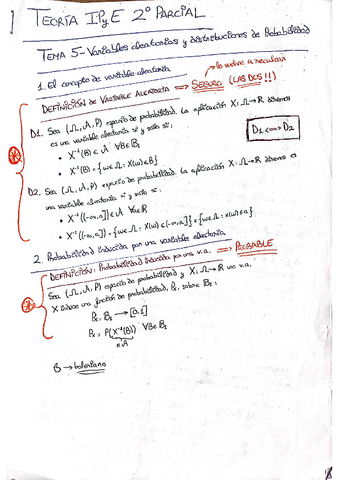 TEORÍA I.P.y E 2º PARCIAL
TEMA 5-Variables aleatorias y distribuciones de Probabilidad
1. El concepto de variable aleatoria
lo vuelve a recalcar
DEFINICIÓN de VARIABLE ALEATORIA ⟹ SEGURO (LAS DOS!!)
D1. Sea (Ω, A, P) espacio de probabilidad. La aplicación X: Ω→R diremos
es una variable aleatoria si y solo si:
• X⁻¹(B) ∈ A ∀B∈B
• X⁻¹(B) = {w∈Ω: X(w)∈B}
D1 ⟺ D2
D2. Sea (Ω, A, P) espacio de probabilidad. La aplicación X: Ω→R diremos es
una variable aleatoria si y solo si:
• X⁻¹((-∞,a]) ∈ A ∀a∈R
• X⁻¹((-∞,a]) = {w∈Ω: X(w)∈(-∞,a]} = {w∈Ω: X(w)≤a}
2. Probabilidad inducida por una variable aleatoria
DEFINICIÓN: Probabilidad inducida por una v.a. ⟹ PROBABLE
Sea (Ω, A, P) espacio de probabilidad y X: Ω→R una v.a.
X induce una función de probabilidad, Pₓ, sobre B:
Pₓ: B → [0,1]
Pₓ = P(X⁻¹(B)) ∀B∈B
∈A
B → boreliano